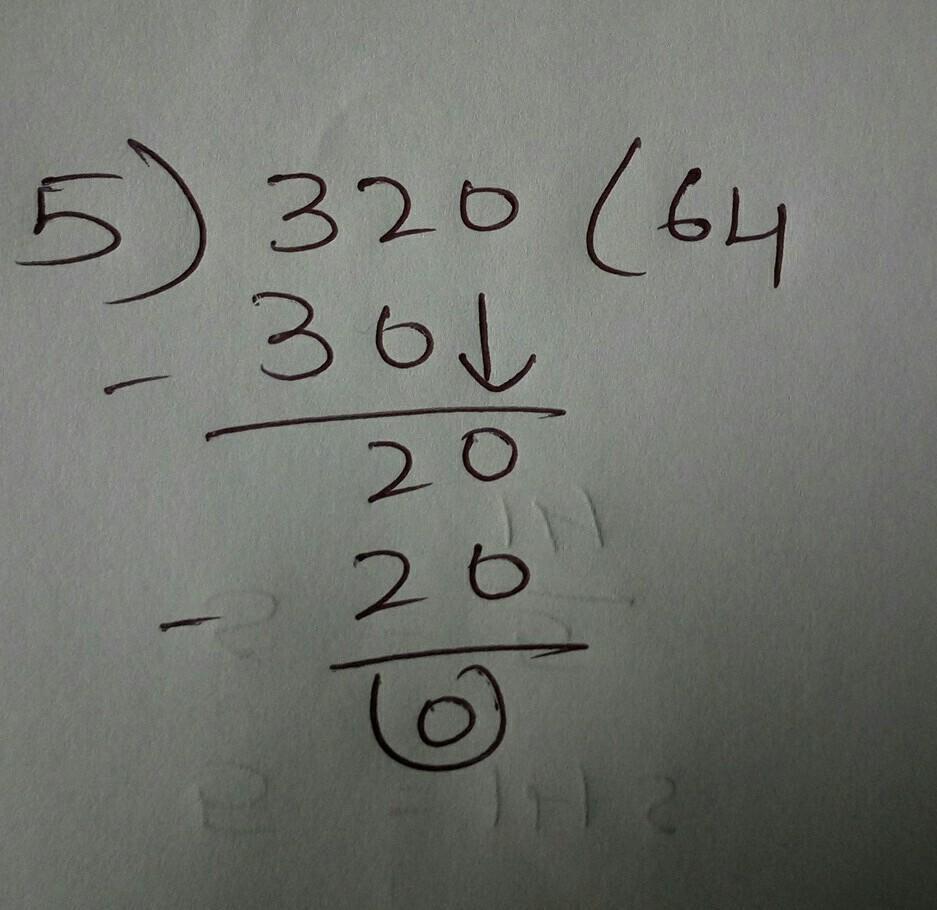 5) 320 (64
- 30↓
20
- 20
0